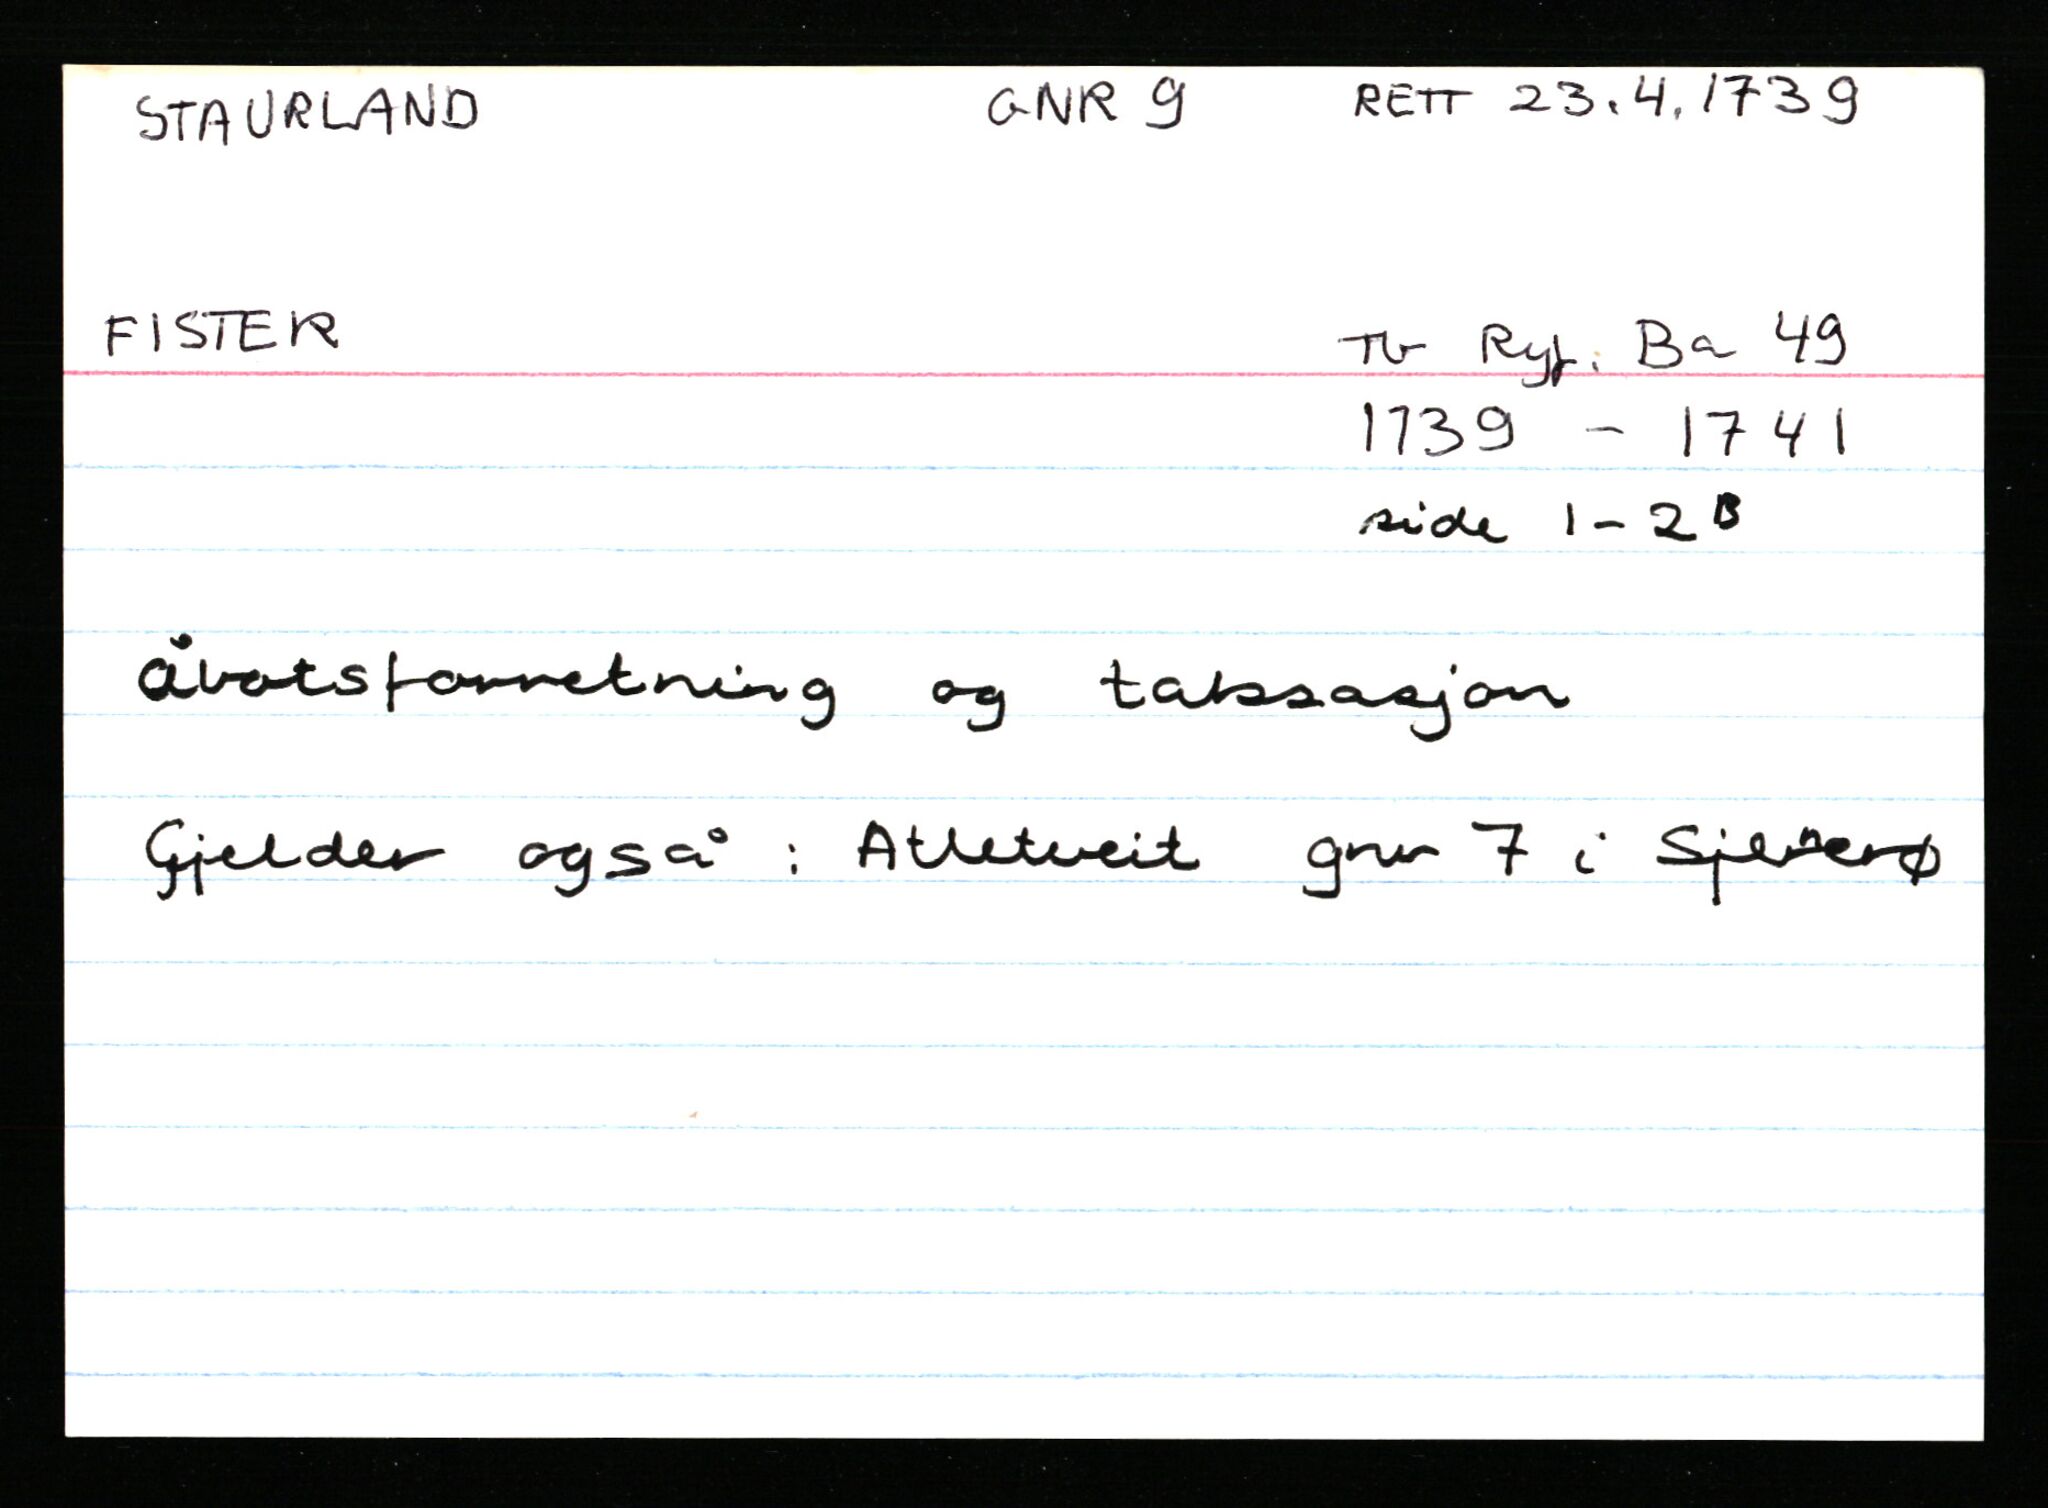 STAURLAND GNR 9 RETT 23.4.1739
FISTER Tb Ryf. Ba 49
1739 - 1741
side 1-2B
åbotsforretning og taksasjon
Gjelder også : Atletveit gnr 7 i Sjernerø